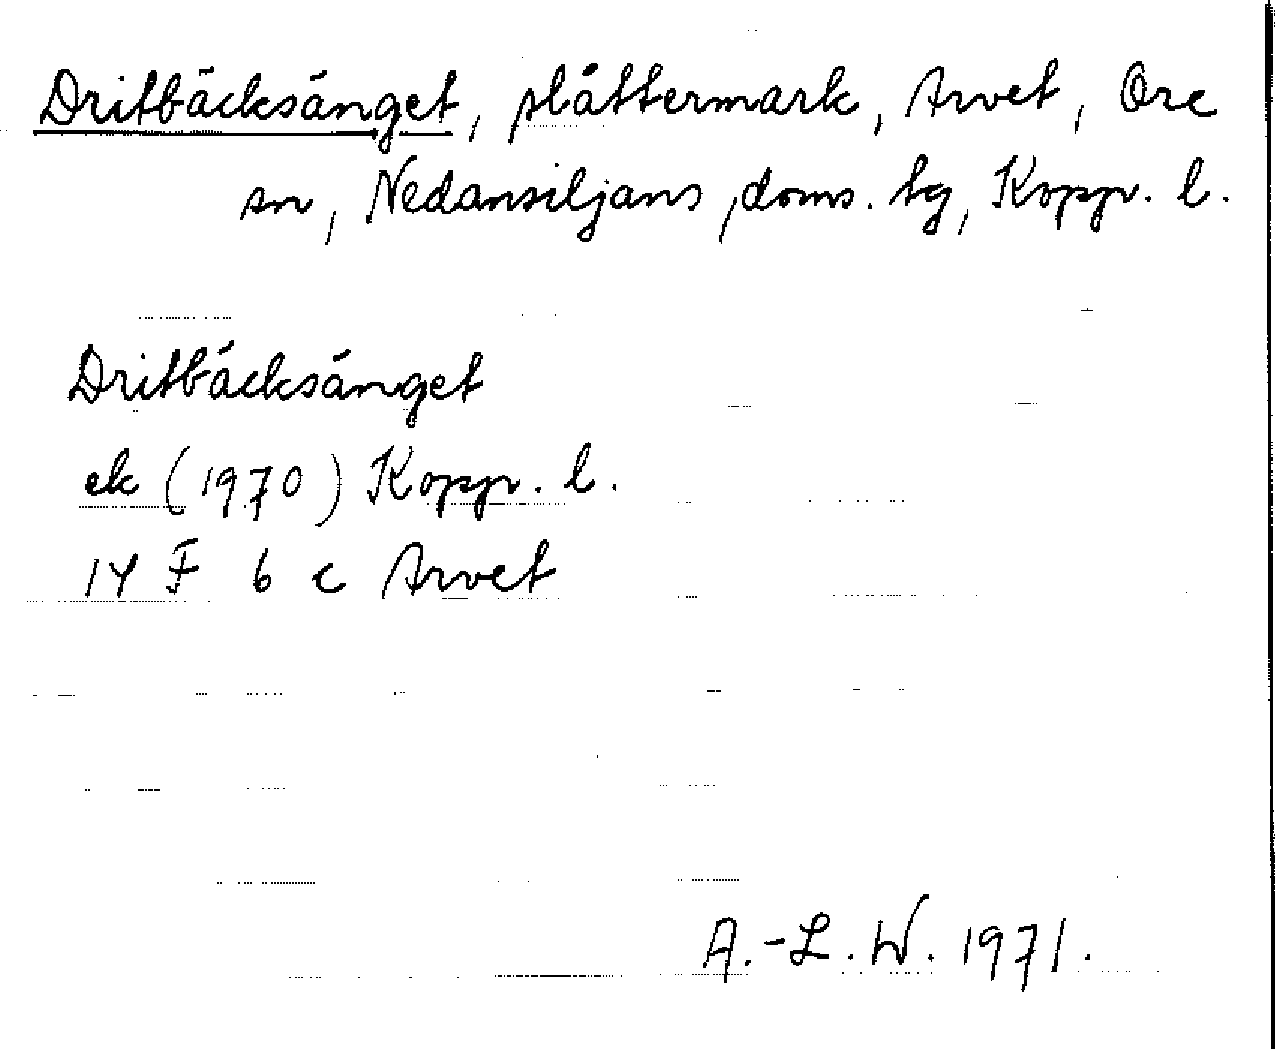 Dritbäcksänget, slåttermark, Arvet, Ore
sn, Nedansiljans doms. tg, Kopp. l.
Dritbäcksänget
ek (1970) Kopp. l.
14 F 6 c Arvet
A.-L. W. 1971.